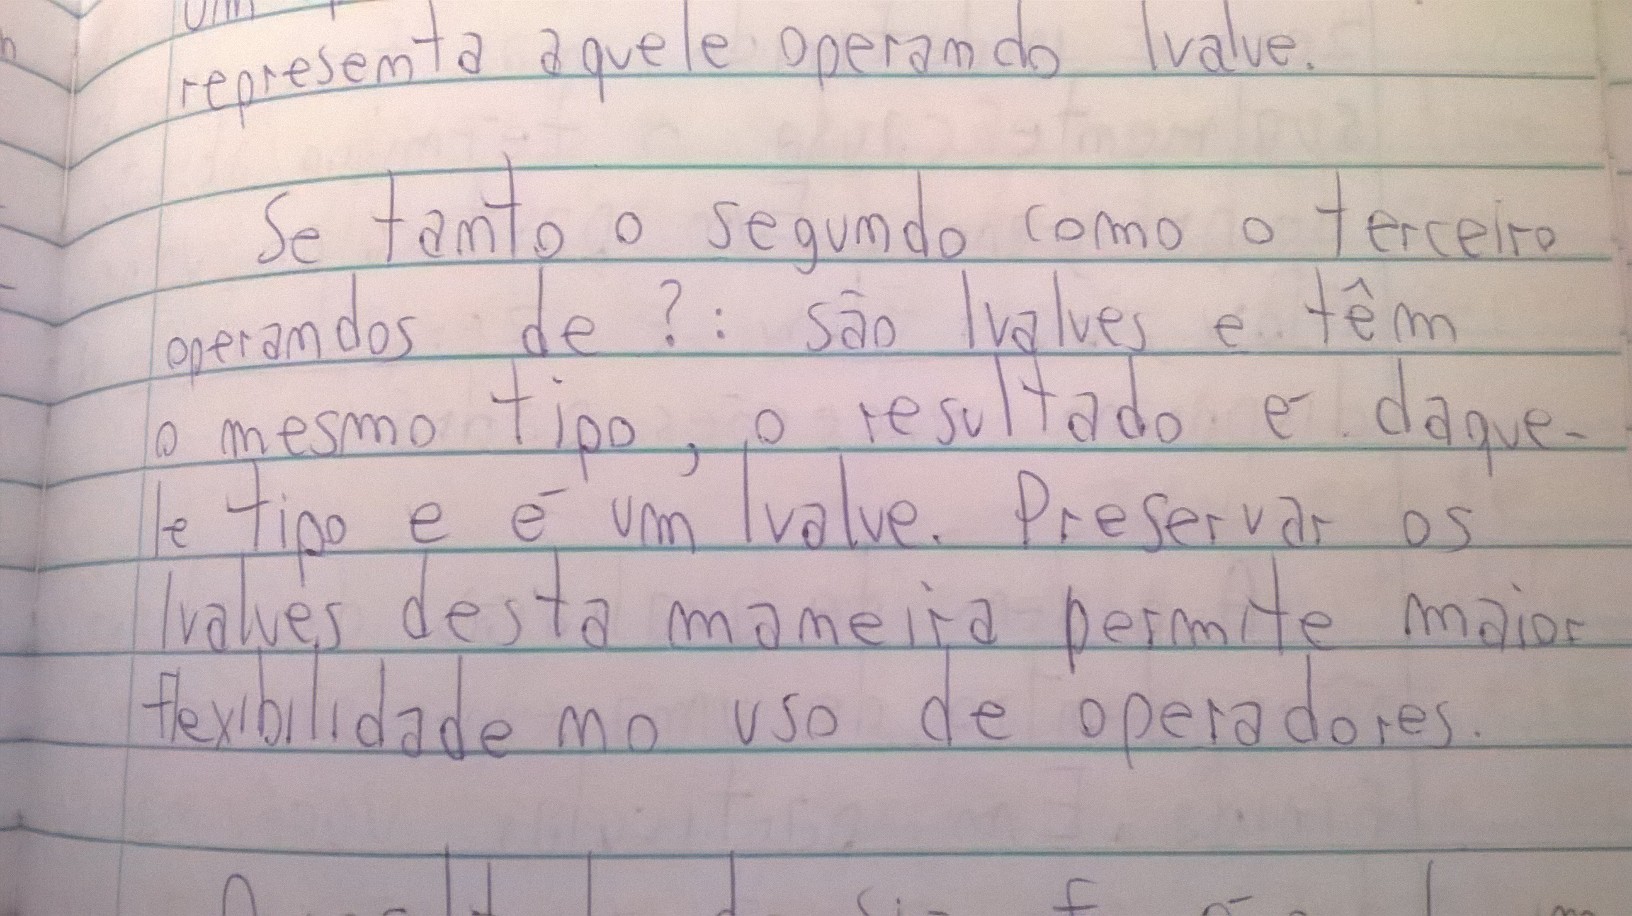 representa aquele operando lvalue.
Se tanto o segundo como o terceiro
operandos de ?: são lvalues e têm
o mesmo tipo, o resultado é daque-
le tipo e é um lvalue. Preservar os
lvalues desta maneira permite maior
flexibilidade no uso de operadores.